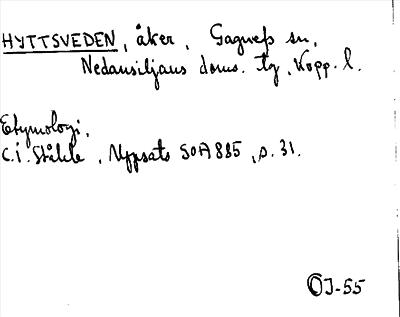 HYTTSVEDEN, åker, Gagnefs sn,
Nedansiljans doms. tg, Kopp. l.
Etymologi.
C.I. Ståhle, Uppsats SOA 885, s. 31.
OJ-55